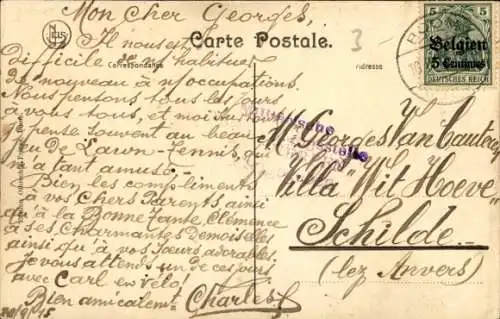 Mon cher Georges,
Il nous est
difficile de
de nouveau à n/occupations.
Nous pensons tous les jours
à vous tous, et moi
pense souvent au beau
jeu de Lawn-Tennis, qui
m'a tant amusé.
Bien les compliments
à vos Chers Parents ainsi
qu'à la Bonne tante Clémence
à ses Charmantes Demoiselles
ainsi qu'à vos Sœurs adorables.
Je vous attends un de ces jours
avec Carl en vélo!
Bien amicalement. Charles
29/9/15
Carte Postale.
Correspondance
Adresse
3
5 5
Belgien
5 Centimes
DEUTSCHES REICH
M. Georges Van Cauteren
Villa "Wit Hoeve"
Schilde
(lez Anvers)